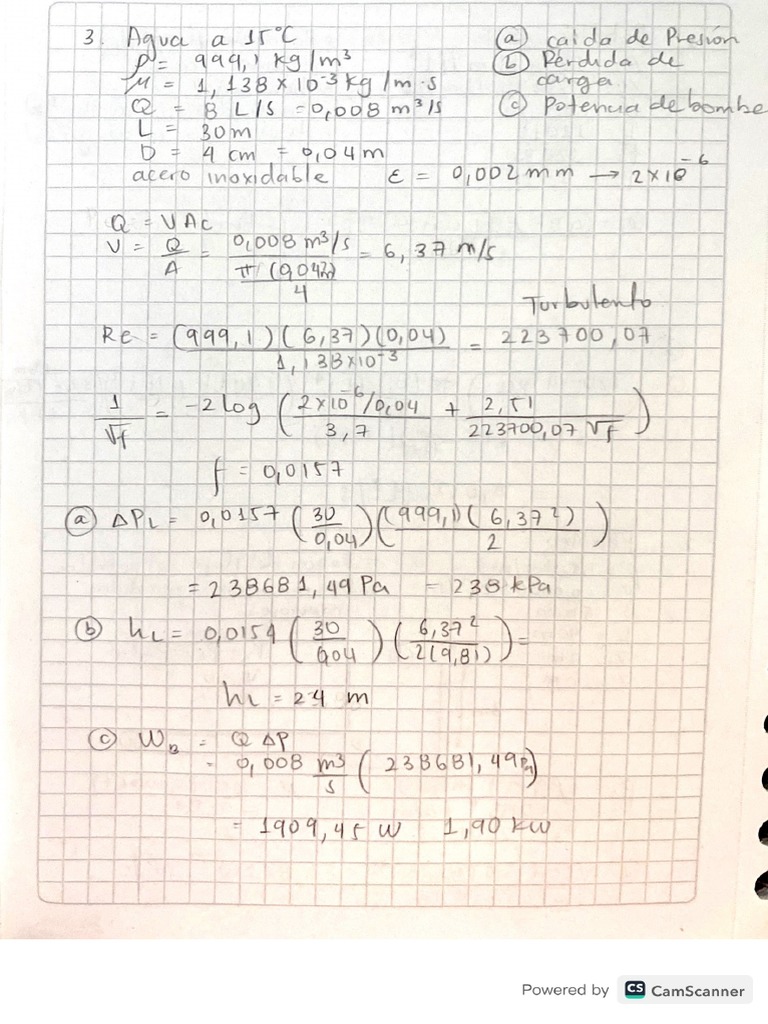 3. Agua a 15°C
ρ = 999,1 kg/m³
μ = 1,138 x 10⁻³ kg/m·s
Q = 8 L/S = 0,008 m³/s
L = 30m
D = 4 cm = 0,04 m
acero inoxidable ε = 0,002 mm → 2x10⁻⁶
(a) caida de Presión
(b) Pérdida de
carga
(c) Potencia de bombe
Q = VAc
V = Q/A = 0,008 m³/s / (π(0,04²)/4) = 6,37 m/s
Turbulento
Re = (999,1)(6,37)(0,04) / 1,138x10⁻³ = 223700,07
1/√f = -2 log ( (2x10⁻⁶/0,04)/3,7 + 2,51/(223700,07 √f) )
f = 0,0157
(a) ΔPL = 0,0157 (30/0,04) ((999,1)(6,37²)/2)
= 238681,49 Pa = 238 kPa
(b) hL = 0,0157 (30/0,04) (6,37²/2(9,81)) =
hL = 24 m
(c) WB = Q ΔP
= 0,008 m³/s (238681,49Pa)
= 1909,45 W 1,90 kW
Powered by CS CamScanner